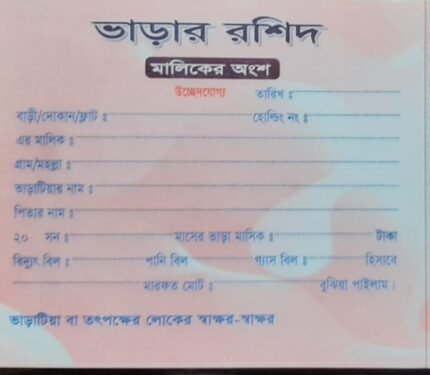 ভাড়ার রশিদ
মালিকের অংশ
উচ্ছেদযোগ্য তারিখ ঃ
বাড়ী/দোকান/ফ্লাট ঃ হোল্ডিং নং ঃ
এর মালিক ঃ
গ্রাম/মহল্লা ঃ
ভাড়াটিয়ার নাম ঃ
পিতার নাম ঃ
২০ সন ঃ মাসের ভাড়া মাসিক ঃ টাকা
বিদ্যুৎ বিল ঃ পানি বিল গ্যাস বিল ঃ হিসাবে
মারফত মোট ঃ বুঝিয়া পাইলাম।
ভাড়াটিয়া বা তৎপক্ষের লোকের স্বাক্ষর-স্বাক্ষর